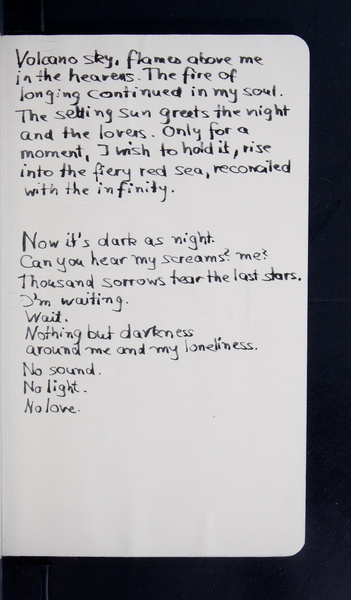 Volcano sky, flames above me
in the heavens. The fire of
longing continued in my soul.
The setting sun greets the night
and the lovers. Only for a
moment, I wish to hold it, rise
into the fiery red sea, reconciled
with the infinity.
Now it's dark as night.
Can you hear my screams? me?
Thousand sorrows tear the last stars.
I'm waiting.
Wait.
Nothing but darkness
around me and my loneliness.
No sound.
No light.
No love.